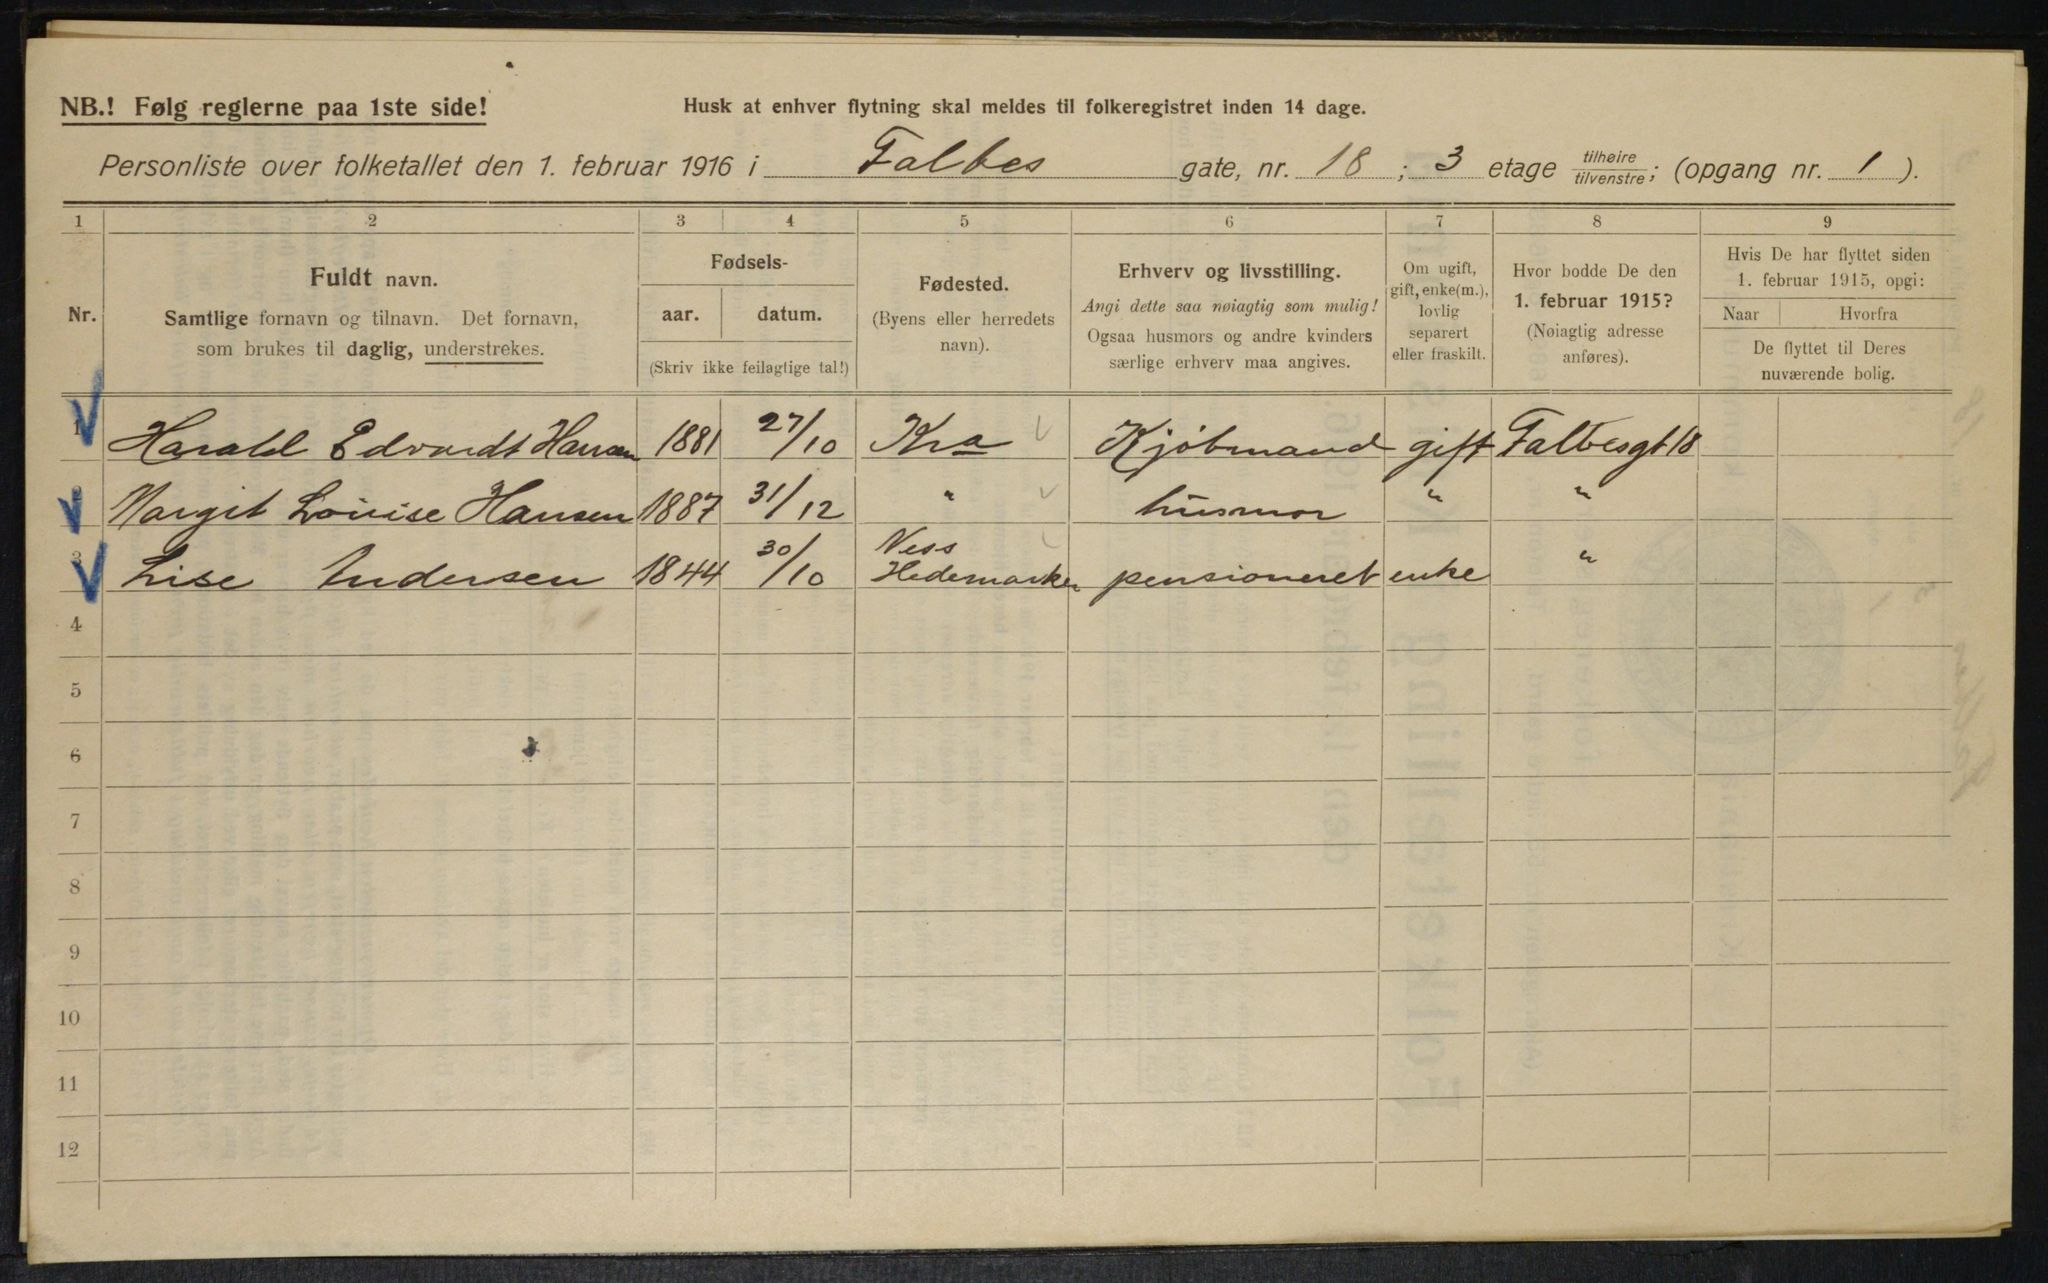 NB.! Følg reglerne paa 1ste side!
Husk at enhver flytning skal meldes til folkeregistret inden 14 dage.
Personliste over folketallet den 1. februar 1916 i Falbes gate, nr. 18; 3 etage tilhøire/tilvenstre; (opgang nr. 1).
1 2 3 4 5 6 7 8 9
Nr.
Fuldt navn.
Samtlige fornavn og tilnavn. Det fornavn,
som brukes til daglig, understrekes.
Fødsels-
aar. datum.
(Skriv ikke feilagtige tal!)
Fødested.
(Byens eller herredets
navn).
Erhverv og livsstilling.
Angi dette saa nøiagtig som mulig!
Ogsaa husmors og andre kvinders
særlige erhverv maa angives.
Om ugift,
gift, enke(m.),
lovlig
separert
eller fraskilt.
Hvor bodde De den
1. februar 1915?
(Nøiagtig adresse
anføres).
Hvis De har flyttet siden
1. februar 1915, opgi:
Naar Hvorfra
De flyttet til Deres
nuværende bolig.
1 Harald Edvardt Hansen 1881 27/10 Kra Kjøbmand gift Falbesgt 18
2 Margit Louise Hansen 1887 31/12 " husmor " "
3 Lise Andersen 1844 30/10 Ness Hedemarken pensioneret enke "
4
5
6
7
8
9
10
11
12